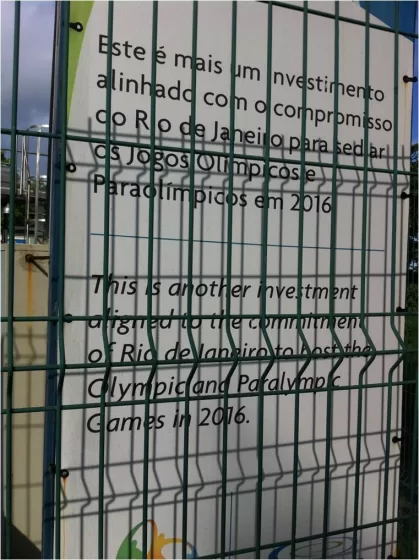 Este é mais um investimento
alinhado com o compromisso
do Rio de Janeiro para sediar
os Jogos Olímpicos e
Paraolímpicos em 2016
This is another investment
aligned to the commitment
of Rio de Janeiro to host the
Olympic and Paralympic
Games in 2016.